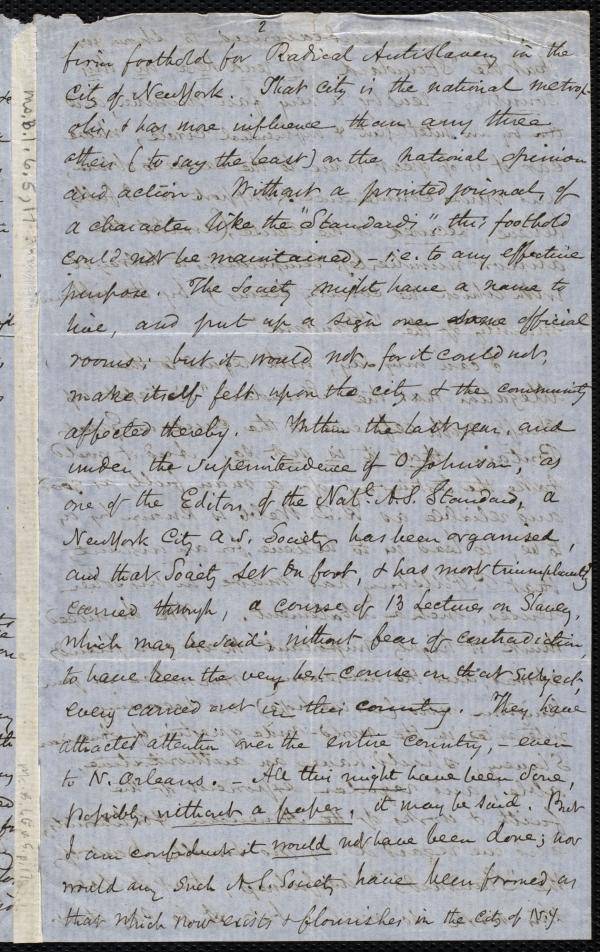 2
firm foothold for Radical Antislavery in the
City of New York. That city is the national metrop-
olis, & has more influence than any three
others (to say the least) on the national opinion
and action. Without a printed journal, of
a character like the "Standard's", this foothold
could not be maintained, - i.e. to any effective
purpose. The Society might have a name to
live, and put up a sign over some official
rooms; but it would not, for it could not,
make itself felt upon the city & the community
affected thereby. Within the last year, and
under the superintendence of O. Johnson, as
one of the Editors of the Natl. A.S. Standard, a
New York City A.S. Society has been organised,
and that Society set on foot, & has most triumphantly
carried through, a course of 13 Lectures on Slavery,
which may be said, without fear of contradiction,
to have been the very best course on that subject,
every carried out in this country. They have
attracted attention over the entire country, - even
to N. Orleans. - All this might have been done,
possibly, without a paper, it may be said. But
I am confident it would not have been done; nor
would any such A.S. Society have been formed as
that which now exists & flourishes in the City of N.Y.